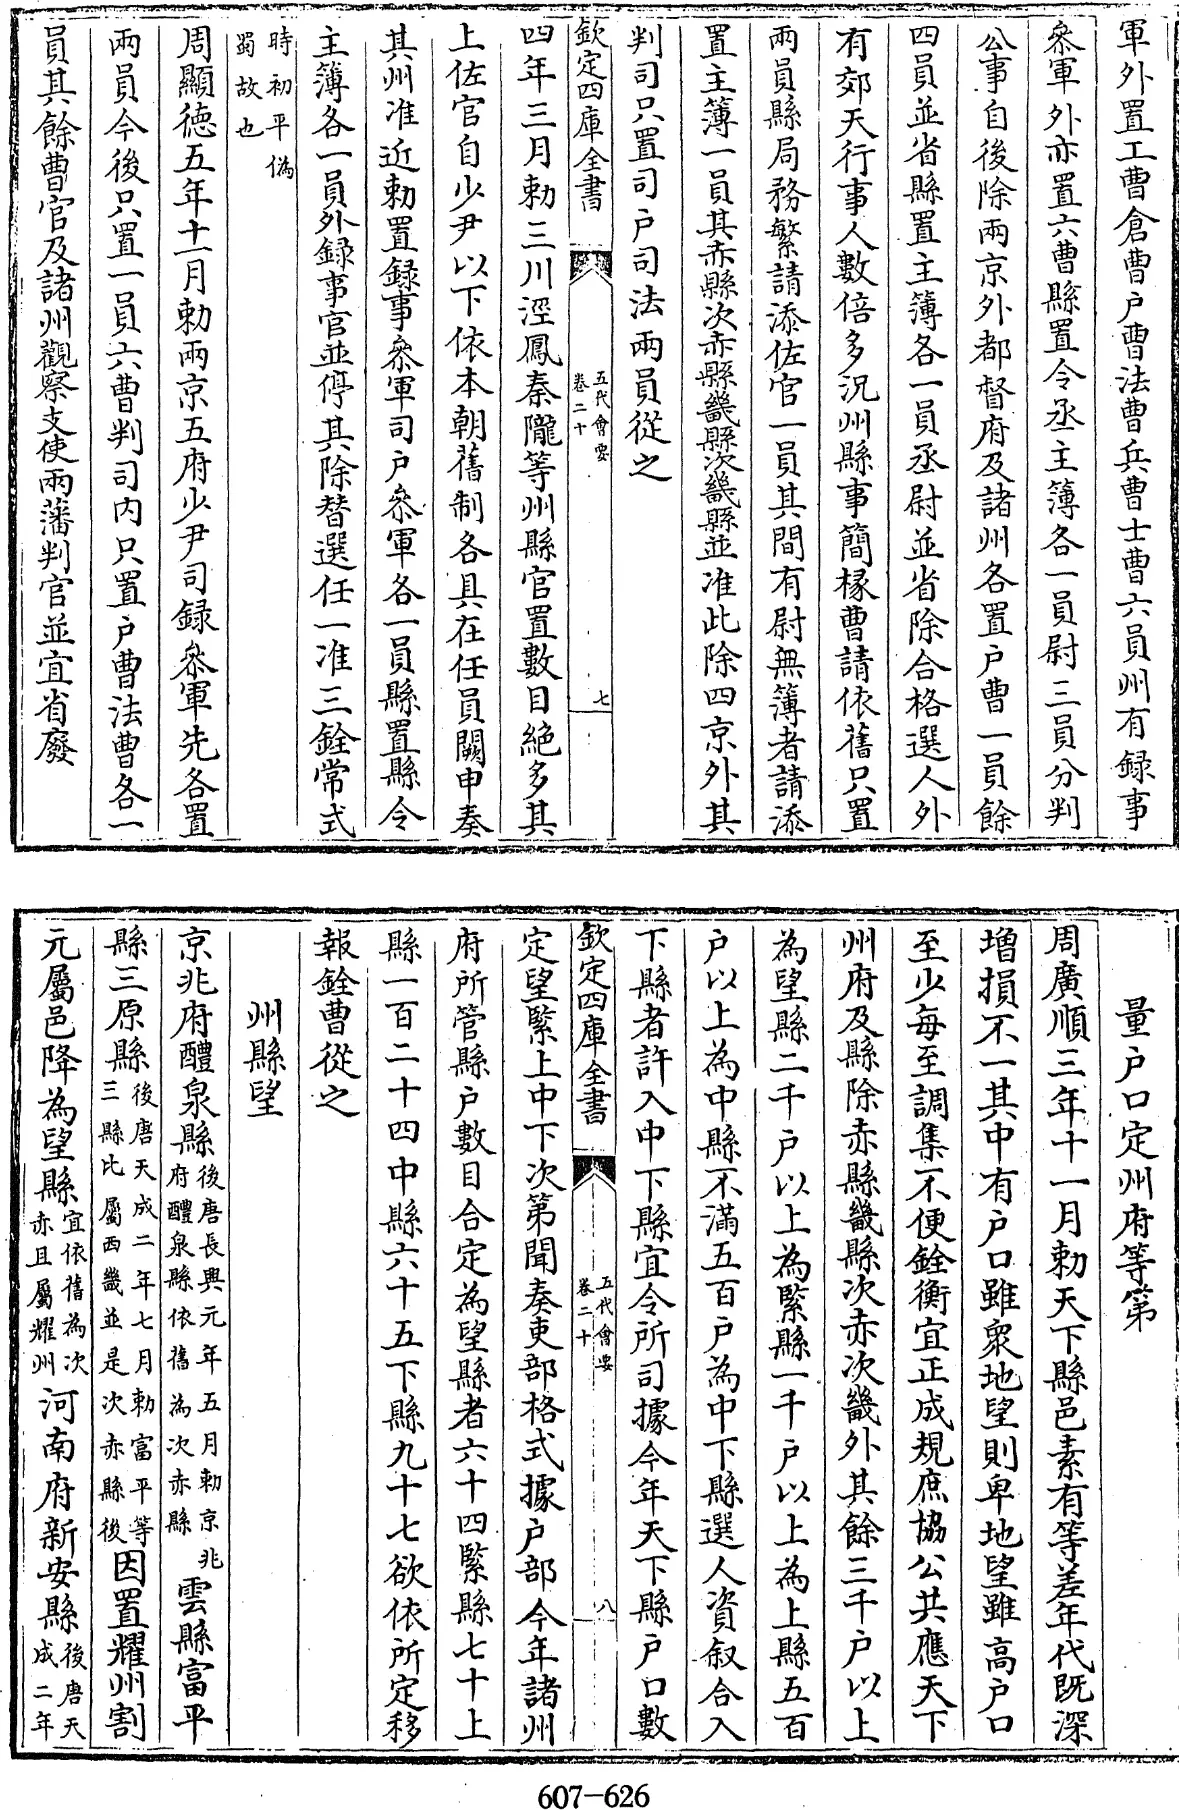 軍外置工曹倉曹户曹法曹兵曹士曹六員州有録事
叅軍外亦置六曹縣置令丞主簿各一員尉三員分判
公事自後除兩京外都督府及諸州各置户曹一員餘
四員並省縣置主簿各一員丞尉並省除合格選人外
有郊天行事人數倍多況州縣事簡椽曹請依舊只置
兩員縣局務繁請添佐官一員其間有尉無簿者請添
置主簿一員其赤縣次赤縣畿縣次畿縣並准此除四京外其
判司只置司户司法兩員從之
欽定四庫全書
五代會要
卷二十
七
四年三月勅三川涇鳳秦隴等州縣官置數目絕多其
上佐官自少尹以下依本朝舊制各具在任員闕申奏
其州准近勅置録事叅軍司户叅軍各一員縣置縣令
主簿各一員外録事官並停其除替選任一准三銓常式
時初平僞
蜀故也
周顯徳五年十一月勅兩京五府少尹司録叅軍先各置
兩員今後只置一員六曹判司内只置户曹法曹各一
員其餘曹官及諸州觀察支使兩藩判官並宜省廢
量户口定州府等第
周廣順三年十一月勅天下縣邑素有等差年代既深
増損不一其中有户口雖衆地望則卑地望雖高户口
至少每至調集不便銓衡宜正成規庶協公共應天下
州府及縣除赤縣畿縣次赤次畿外其餘三千户以上
為望縣二千户以上為緊縣一千户以上為上縣五百
户以上為中縣不滿五百户為中下縣選人資叙合入
下縣者許入中下縣宜令所司據今年天下縣户口數
欽定四庫全書
五代會要
卷二十
八
定望緊上中下次第聞奏吏部格式據户部今年諸州
府所管縣户數目合定為望縣者六十四緊縣七十上
縣一百二十四中縣六十五下縣九十七欲依所定移
報銓曹從之
州縣望
京兆府醴泉縣後唐長興元年五月勅京兆府醴泉縣依舊為次赤縣雲縣富平
縣三原縣後唐天成二年七月勅富平等三縣比屬西畿並是次赤縣後因置耀州割
元屬邑降為望縣宜依舊為次赤且屬耀州河南府新安縣後唐天成二年
607-626